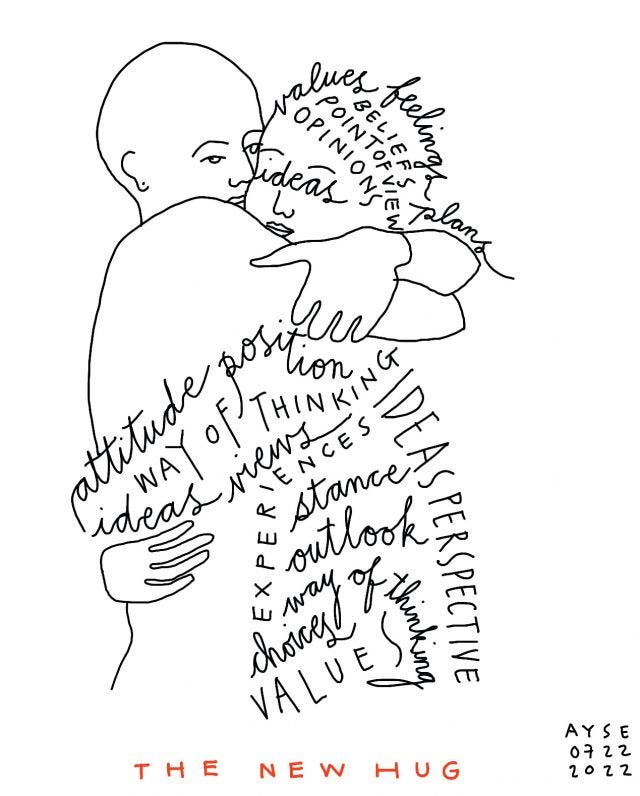 values feelings
BELIEFS
POINT OF VIEW
OPINIONS
ideas
plans
attitude position
WAY OF THINKING
ideas views
IDEAS
PERSPECTIVE
EXPERIENCES
stance
outlook
way of thinking
choices
VALUES
THE NEW HUG
AYSE
0722
2022